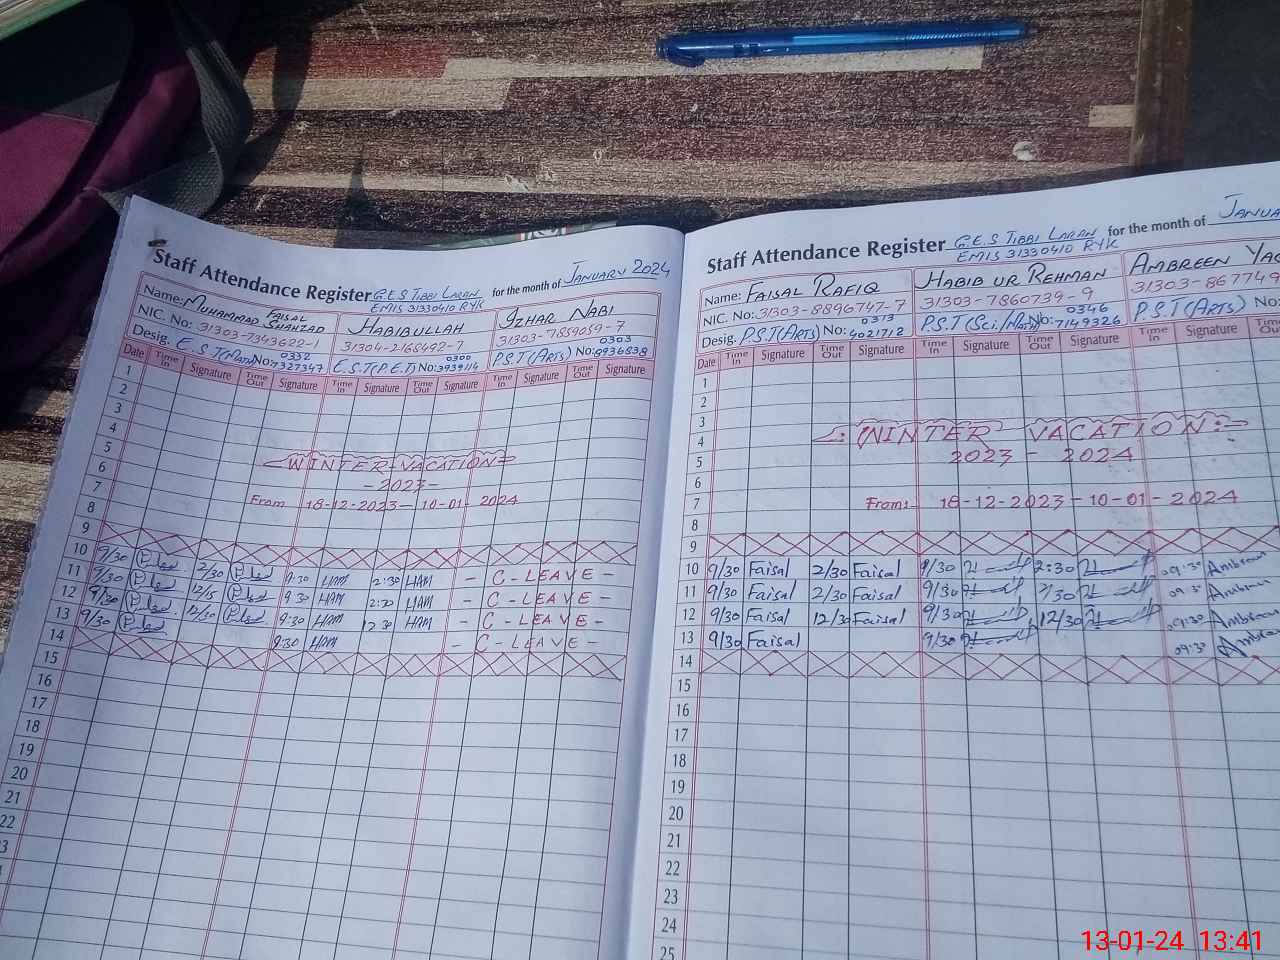 Staff Attendance Register G.E.S TIBBI LARAN for the month of JANUARY 2024
EMIS 31330410 RYK
Name: MUHAMMAD FAISAL SHAHZAD HABIBULLAH IZHAR NABI
NIC. No: 31303-7343622-1 31304-2168492-7 31303-7859059-7
Desig. E.S.T(Math) No: 0332 7327347 E.S.T(P.E.T) No: 0300 3939114 P.S.T(ARTS) No: 0303 9936838
Date Time In Signature Time Out Signature Time In Signature Time Out Signature Time In Signature Time Out Signature
1
2
3
4
5 WINTER VACATION
6 -2023-
7 From 18-12-2023 - 10-01-2024
8
9
10 9/30 2/30 9:30 HAM 2:30 HAM - C-LEAVE -
11 9/30 12/15 9:30 HAM 2:30 HAM - C-LEAVE -
12 9/30 12/30 9:30 HAM 12:30 HAM - C-LEAVE -
13 9/30 9:30 HAM - C-LEAVE -
14
15
16
17
18
19
20
21
22
Staff Attendance Register G.E.S TIBBI LARAN for the month of JANUA
EMIS 31330410 RYK
Name: FAISAL RAFIQ HABIB UR REHMAN AMBREEN YA
NIC. No: 31303-8896747-7 31303-7860739-9 31303-867749
Desig. P.S.T(ARTS) No: 0313 4021712 P.S.T(Sci./Math) No: 0346 7149326 P.S.T(ARTS) No:
Date Time In Signature Time Out Signature Time In Signature Time Out Signature Time In Signature Time Out
1
2
3
4 :WINTER VACATION:-
5 2023 - 2024
6
7 From:- 18-12-2023 - 10-01-2024
8
9
10 9/30 Faisal 2/30 Faisal 9/30 2:30 09:30 Ambreen
11 9/30 Faisal 2/30 Faisal 9/30 2/30 Ambreen
12 9/30 Faisal 12/30 Faisal 9/30 12/30 09:30 Ambreen
13 9/30 Faisal 9/30 09:30 Ambreen
14
15
16
17
18
19
20
21
22
23
24
25
13-01-24 13:41